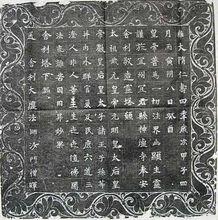 維大隋仁壽四年歲次甲子四
月丙寅朔八日癸酉
皇帝普為一切法界幽顯生靈
謹於宜州宜君縣神德寺奉安
舍利敬造靈塔願
太祖武元皇帝元明皇太后皇
帝皇后皇太子諸王子孫等
并內外群官爰及民庶六道三
塗人非人等生生世世值佛聞
法永離苦因同昇妙果
舍利塔下銘
送舍利大德法師沙門僧暉